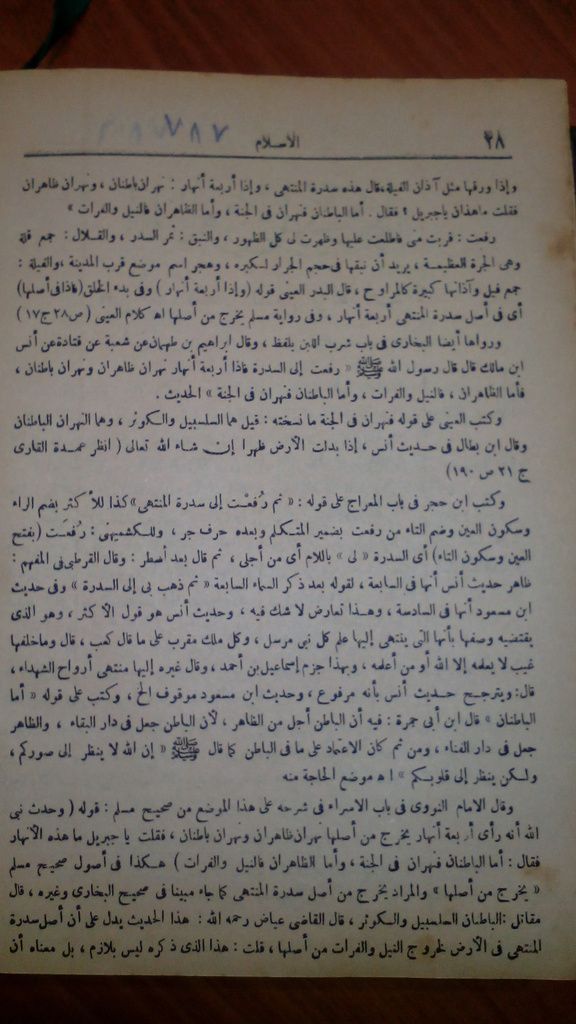 ٢٨ الاسلام ٧٨٧
وإذا ورقها مثل آذان الفيلة، قال هذه سدرة المنتهى ، وإذا أربعة أنهار : نهران باطنان ، ونهران ظاهران
فقلت ماهذان ياجبريل ؟ فقال . أما الباطنان فنهران فى الجنة ، وأما الظاهران فالنيل والفرات »
رفعت : قربت منى فاطلعت عليها وظهرت لى كل الظهور ، والنبق : ثمر السدر ، والقلال : جمع قلة
وهى الجرة العظيمة ، يريد أن نبقها فى حجم الجرار لكبره ، وهجر اسم موضع قرب المدينة ،والفيلة :
جمع فيل وآذانها كبيرة كالمراوح ، قال البدر العينى قوله (وإذا أربعة أنهار ) وفى بدء الخلق (فاذا فى أصلها)
أى فى أصل سدرة المنتهى أربعة أنهار ، وفى رواية مسلم يخرج من أصلها اه كلام العينى ( ص٢٨ ج١٧ )
ورواها أيضا البخارى فى باب شرب اللبن بلفظ ، وقال ابراهيم بن طهمان عن شعبة عن قتادة عن أنس
ابن مالك قال قال رسول الله ﷺ « رفعت إلى السدرة فاذا أربعة أنهار نهران ظاهران ونهران باطنان ،
فأما الظاهران ، فالنيل والفرات ، وأما الباطنان فنهران فى الجنة » الحديث .
وكتب العينى على قوله فنهران فى الجنة ما نسخته : قيل هما السلسبيل والكوثر ، وهما النهران الباطنان
وقال ابن بطال فى حديث أنس ، إذا بدلت الأرض ظهرا إن شاء الله تعالى ( انظر عمدة القارى
ج ٢١ ص ١٩٠ )
وكتب ابن حجر فى باب المعراج على قوله : « ثم رُفعْت إلى سدرة المنتهى » كذا للأكثر بضم الراء
وسكون العين وضم التاء من رفعت بضمير المتكلم وبعده حرف جر ، وللكشميهنى : رُفعَت (بفتح
العين وسكون التاء) أى السدرة « لى » باللام أى من أجلى ، ثم قال بعد أسطر : وقال القرطبى فى المفهم :
ظاهر حديث أنس أنها فى السابعة ، لقوله بعد ذكر السماء السابعة « ثم ذهب بى إلى السدرة » وفى حديث
ابن مسعود أنها فى السادسة ، وهذا تعارض لا شك فيه ، وحديث أنس هو قول الأكثر ، وهو الذى
يقتضيه وصفها بأنها التى ينتهى إليها علم كل نبى مرسل ، وكل ملك مقرب على ما قال كعب ، قال وماخلفها
غيب لا يعلمه إلا الله أو من أعلمه ، وبهذا جزم إسماعيل بن أحمد ، وقال غيره إليها منتهى أرواح الشهداء ،
قال: ويترجح حديث أنس بأنه مرفوع ، وحديث ابن مسعود موقوف الخ ، وكتب على قوله « أما
الباطنان » قال ابن أبى جمرة : فيه أن الباطن أجل من الظاهر ، لأن الباطن جعل فى دار البقاء ، والظاهر
جعل فى دار الفناء ، ومن ثم كان الاعتماد على ما فى الباطن كما قال ﷺ « إن الله لا ينظر إلى صوركم ،
ولكن ينظر إلى قلوبكم » ا ه موضع الحاجة منه
وقال الامام النووى فى باب الاسراء فى شرحه على هذا الموضع من صحيح مسلم : قوله ( وحدث نبى
الله أنه رأى أربعة أنهار يخرج من أصلها نهران ظاهران ونهران باطنان ، فقلت يا جبريل ما هذه الأنهار
فقال : أما الباطنان فنهران فى الجنة ، وأما الظاهران فالنيل والفرات ) هكذا فى أصول صحيح مسلم
« يخرج من أصلها » والمراد يخرج من أصل سدرة المنتهى كما جاء مبينا فى صحيح البخارى وغيره ، قال
مقاتل :الباطنان السلسبيل والكوثر ، قال القاضى عياض رحمه الله : هذا الحديث يدل على أن أصل سدرة
المنتهى فى الأرض لخروج النيل والفرات من أصلها ، قلت : هذا الذى ذكره ليس بلازم ، بل معناه أن